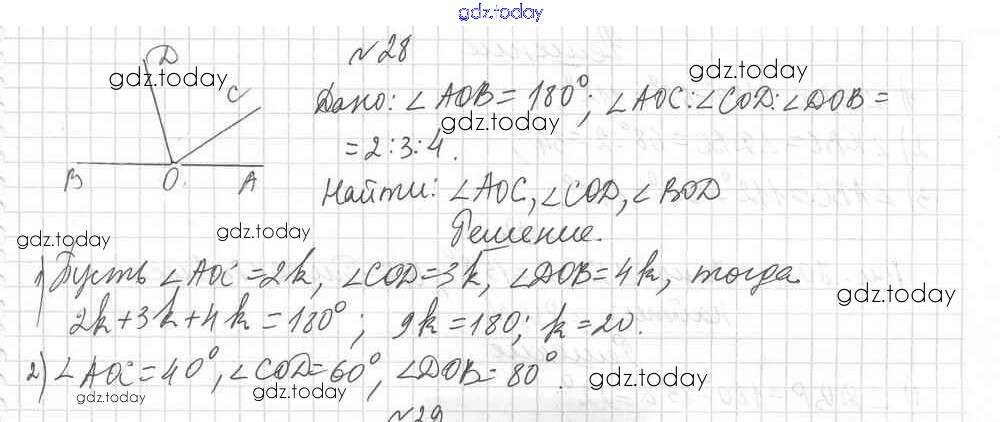 gdz.today
№28
D
gdz.today
C
gdz.today
Дано: ∠AOB = 180°; ∠AOC:∠COD:∠DOB =
gdz.today
= 2:3:4.
B O. A
Найти: ∠AOC, ∠COD, ∠BOD
gdz.today gdz.today
Решение.
1) Пусть ∠AOC = 2k, ∠COD = 3k, ∠DOB = 4k, тогда
gdz.today
2k+3k+4k = 180°; 9k = 180; k = 20.
2) ∠AOC = 40°, ∠COD = 60°, ∠DOB = 80°.
gdz.today gdz.today gdz.today
№29